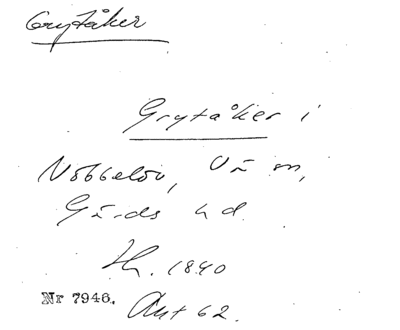 Grytåker
Grytåker i
Nöbbelöv, V ä m,
Gärds hd.
Th. 1840
Nr 7946. Akt 62.